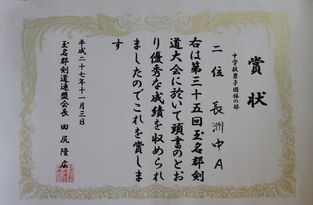 賞状
中学校男子団体の部
二位 長洲中A
右は第三十五回玉名郡剣
道大会に於いて頭書のとお
り優秀な成績を収められ
ましたのでこれを賞しま
す
平成二十七年十一月三日
玉名郡剣道連盟会長 田尻隆広